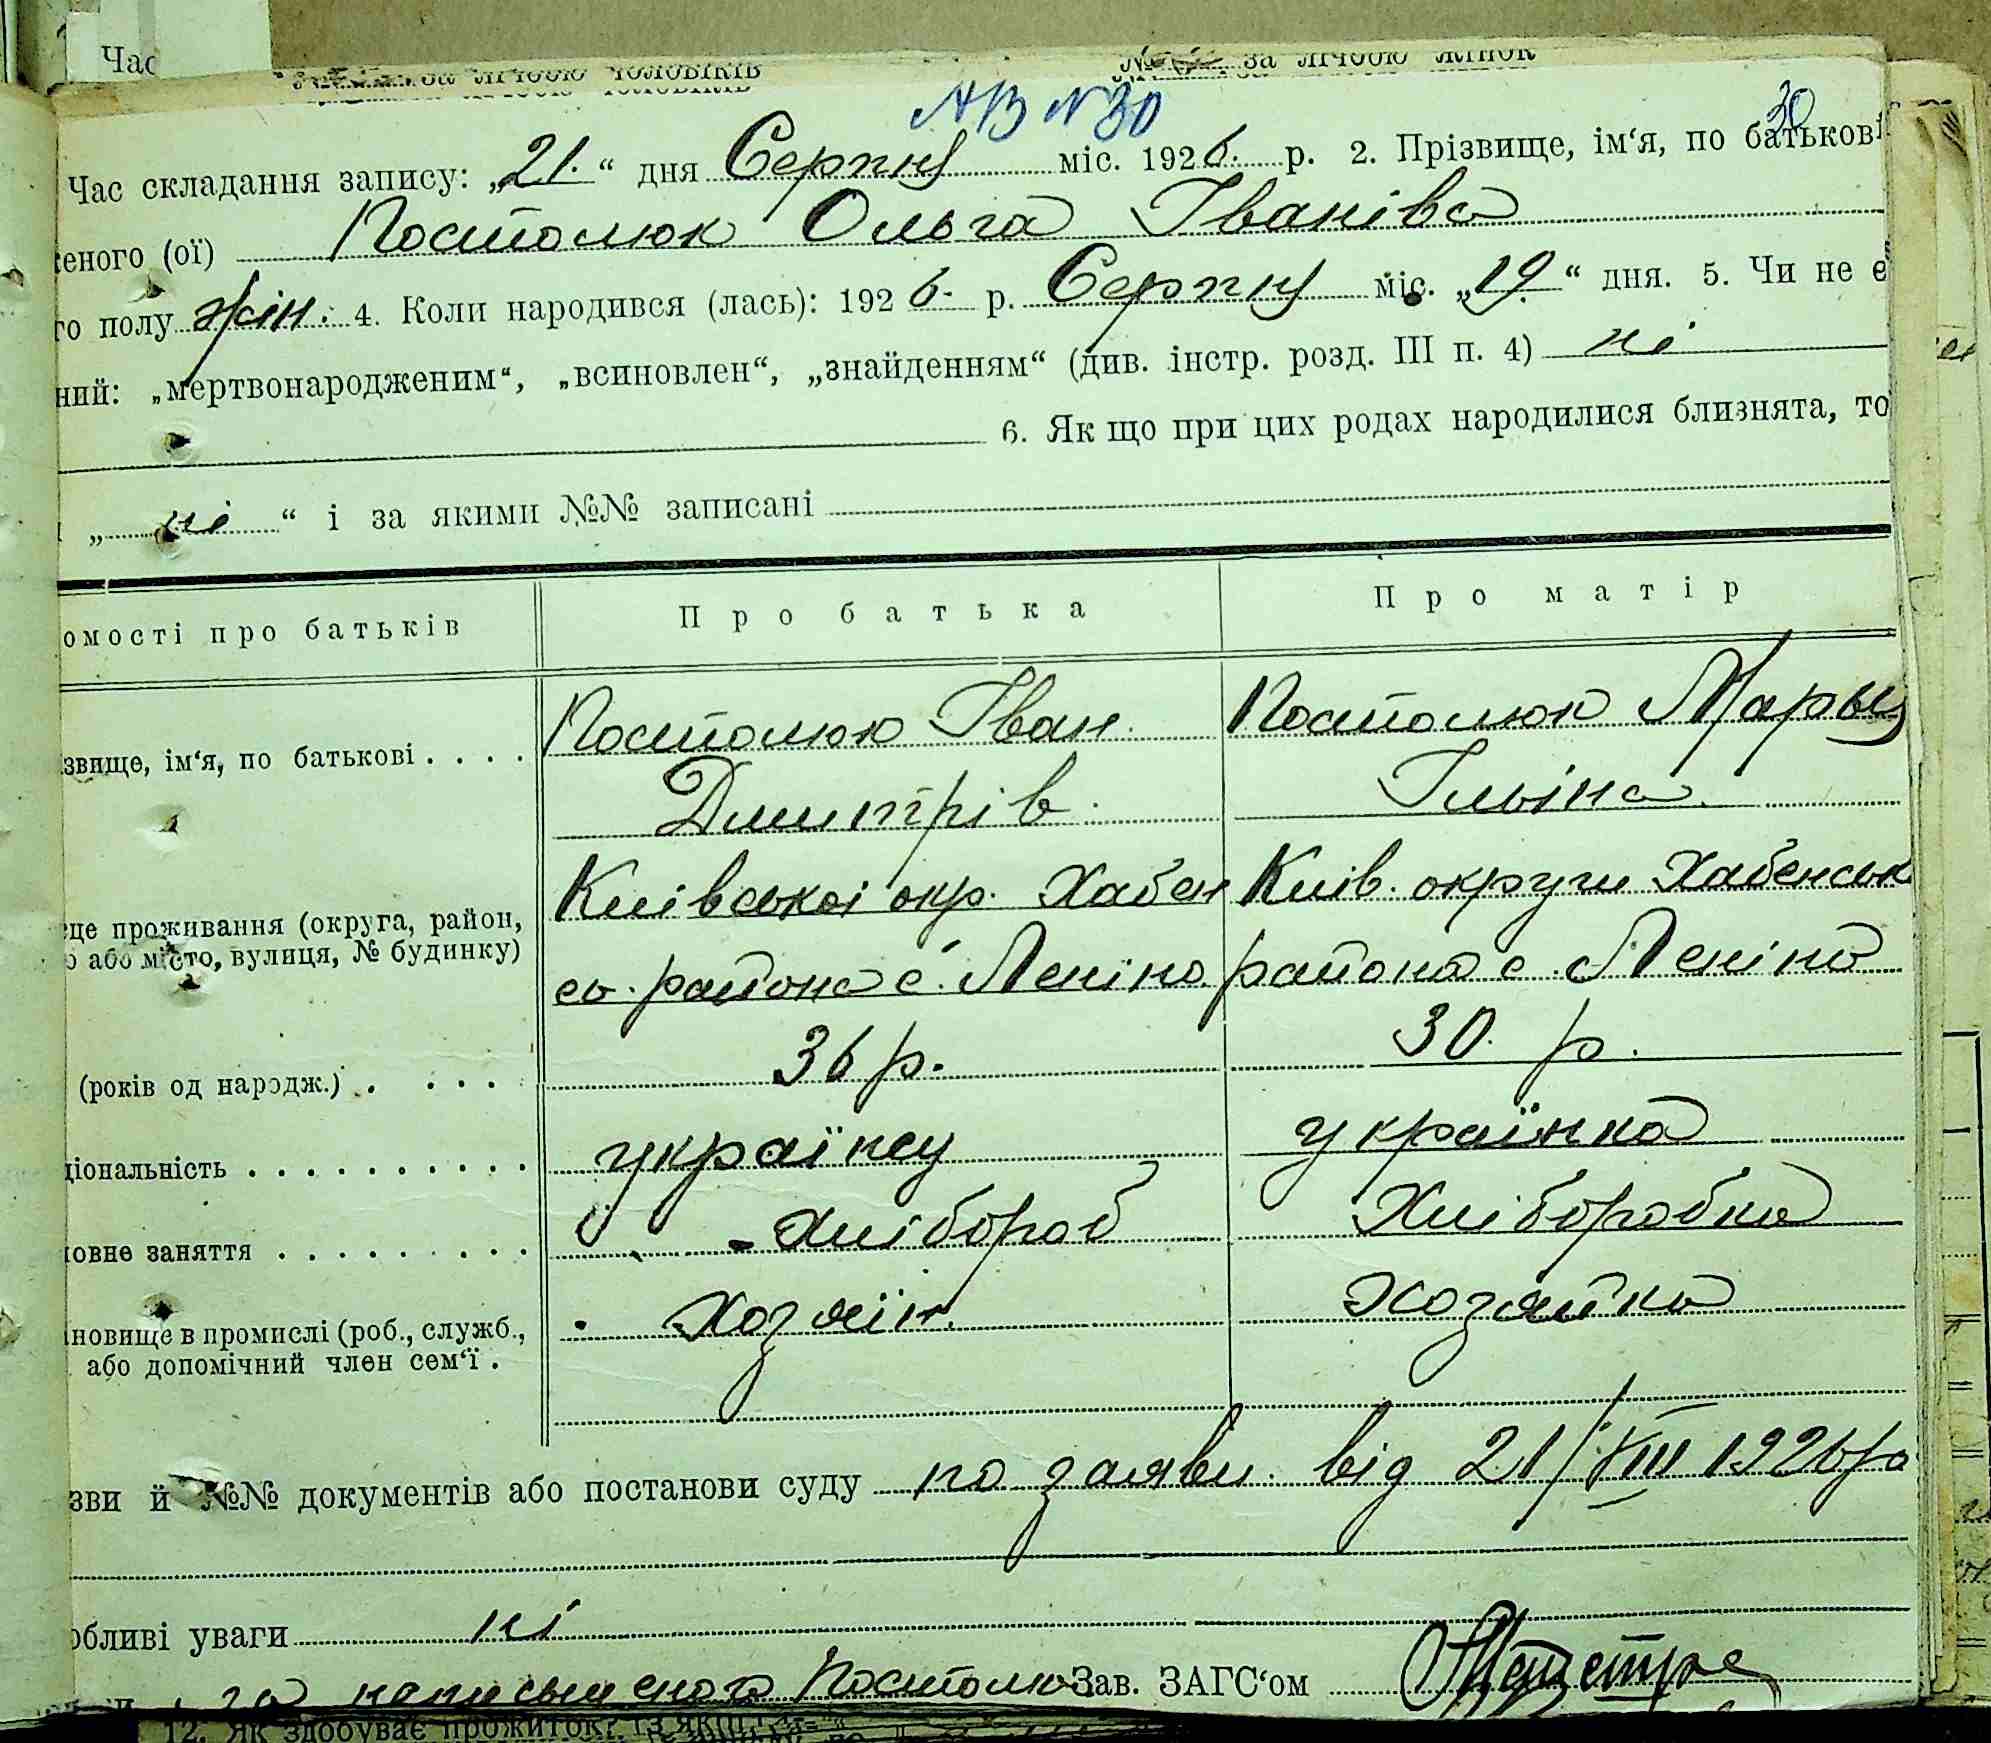 Час
за лічбою чоловіків № за лічбою жінок
АВ N 30 30
Час складання запису: „21.“ дня Серпня міс. 1926. р. 2. Прізвище, ім‘я, по батькові
женого (ої) Постолюк Ольга Іванівна
го полу жін. 4. Коли народився (лась): 1926. р. Серпня міс. „19.“ дня. 5. Чи не є
ний: „мертвонародженим“, „всиновлен“, „знайденням“ (див. інстр. розд. III п. 4) ні
6. Як що при цих родах народилися близнята, то
„ ні “ і за якими №№ записані
омості про батьків Про батька Про матір
Постолюк Іван Постолюк Марья
звище, ім‘я, по батькові Дмитрів Ільіна
Київської окр. Хабен Київ. округи Хабенськ
це проживання (округа, район,
о або місто, вулиця, № будинку) сь. района с. Леніно района с. Леніно
(років од народж.) 36 р. 30. р.
ціональність українец українка
ловне заняття Хлібороб Хліборобка
новище в промислі (роб., служб., Хозяїн. Хозяйка
або допомічний член сем‘ї
зви й №№ документів або постанови суду по заяви від 21/VIII 1926 р
обливі уваги ні
за неписьменого Постолюк Зав. ЗАГС‘ом
12. Як здобуває прожиток?